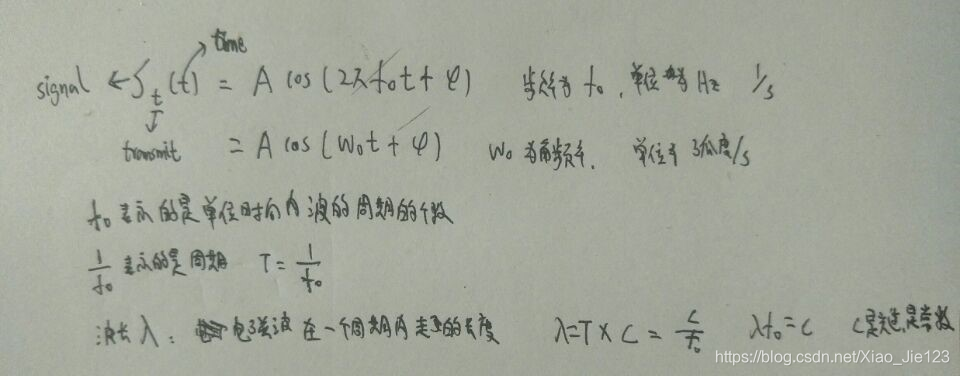 time
signal ← S_t(t) = A cos(2πf₀t + φ) 频率为 f₀, 单位为 Hz 1/s
transmit = A cos(W₀t + φ) W₀为角频率, 单位为 弧度/s
f₀ 表示的是单位时间内波的周期的个数
1/f₀ 表示的是周期 T = 1/f₀
波长 λ: 电磁波在一个周期内走的长度 λ=T×C = C/f₀ λf₀=C C是光速,是常数
https://blog.csdn.net/Xiao_Jie123